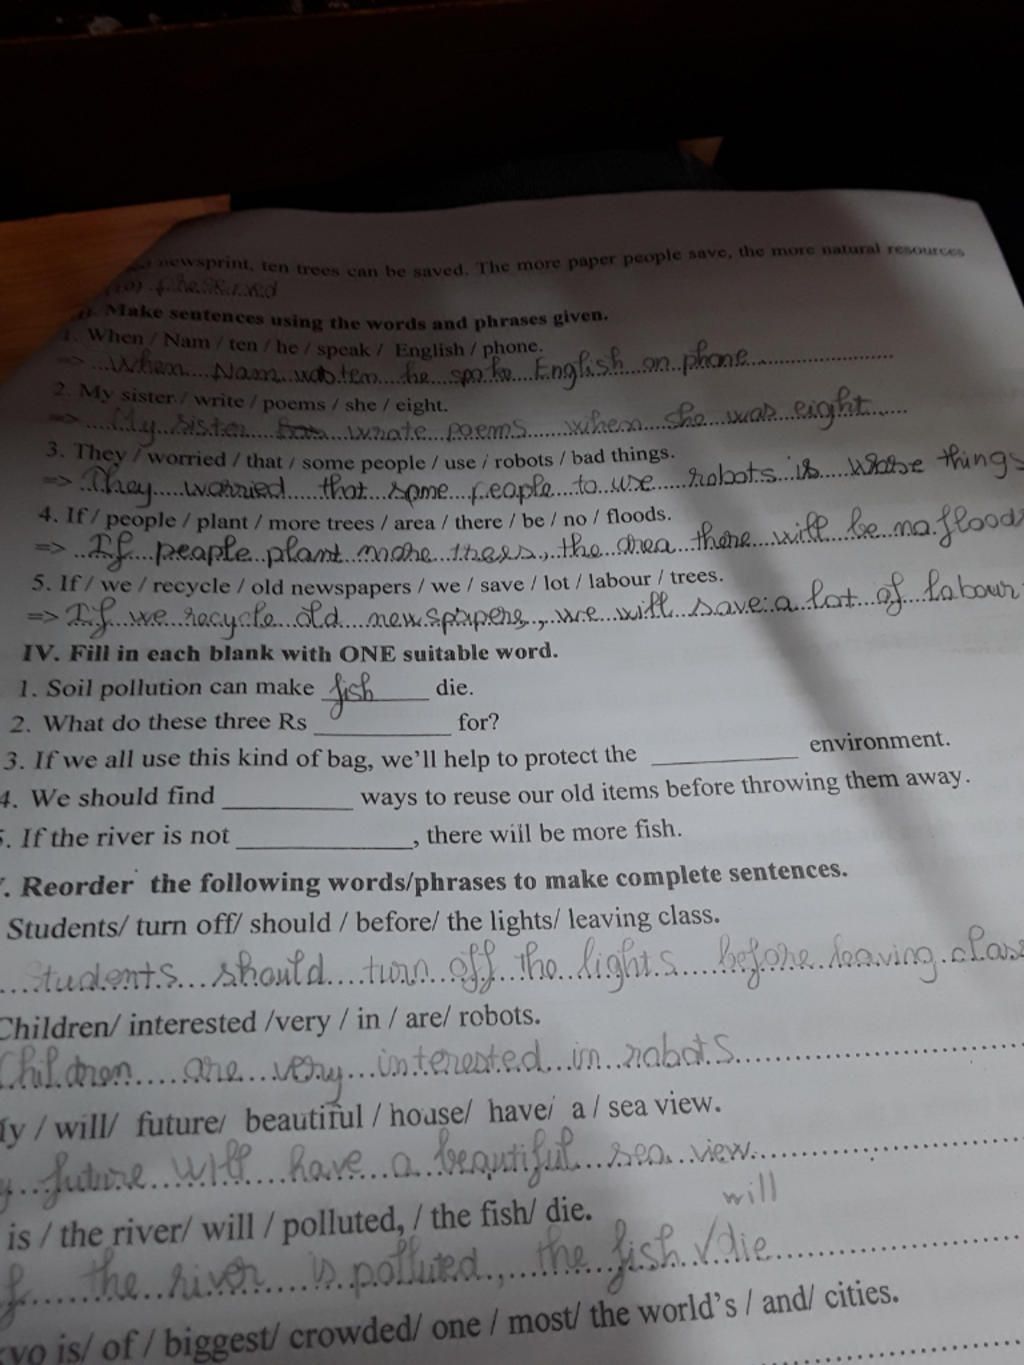 newsprint, ten trees can be saved. The more paper people save, the more natural resources
Make sentences using the words and phrases given.
1. When / Nam / ten / he / speak / English / phone.
=> When Nam was ten he spoke English on phone
2. My sister / write / poems / she / eight.
=> My sister wrote poems when she was eight
3. They / worried / that / some people / use / robots / bad things.
=> They worried that some people to use robots is things
4. If / people / plant / more trees / area / there / be / no / floods.
=> If people plant more trees, the area there will be no floods
5. If / we / recycle / old newspapers / we / save / lot / labour / trees.
=> If we recycle old newspapers, we will save a lot of labour
IV. Fill in each blank with ONE suitable word.
1. Soil pollution can make fish die.
2. What do these three Rs ____ for?
3. If we all use this kind of bag, we'll help to protect the ____ environment.
4. We should find ____ ways to reuse our old items before throwing them away.
5. If the river is not ____, there will be more fish.
. Reorder the following words/phrases to make complete sentences.
Students/ turn off/ should / before/ the lights/ leaving class.
Students should turn off the lights before leaving class
Children/ interested /very / in / are/ robots.
Children are very interested in robots
/ will/ future/ beautiful / house/ have/ a / sea view.
future will have a beautiful sea view
will
is / the river/ will / polluted, / the fish/ die.
the river is polluted, the fish √ die
is/ of / biggest/ crowded/ one / most/ the world's / and/ cities.